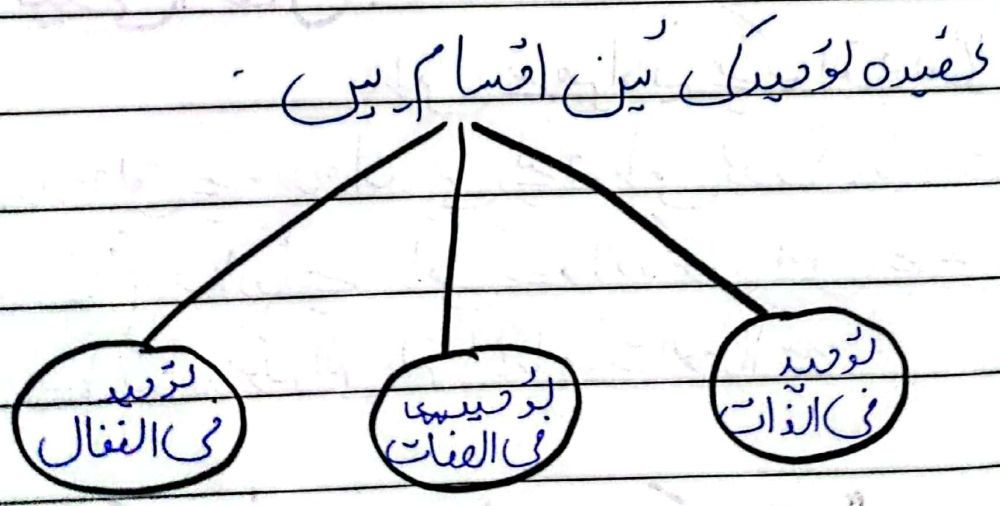 عقیدہ توحید کی تین اقسام ہیں۔
توحید
فی الذات
توحید
فی الصفات
توحید
فی الفعال